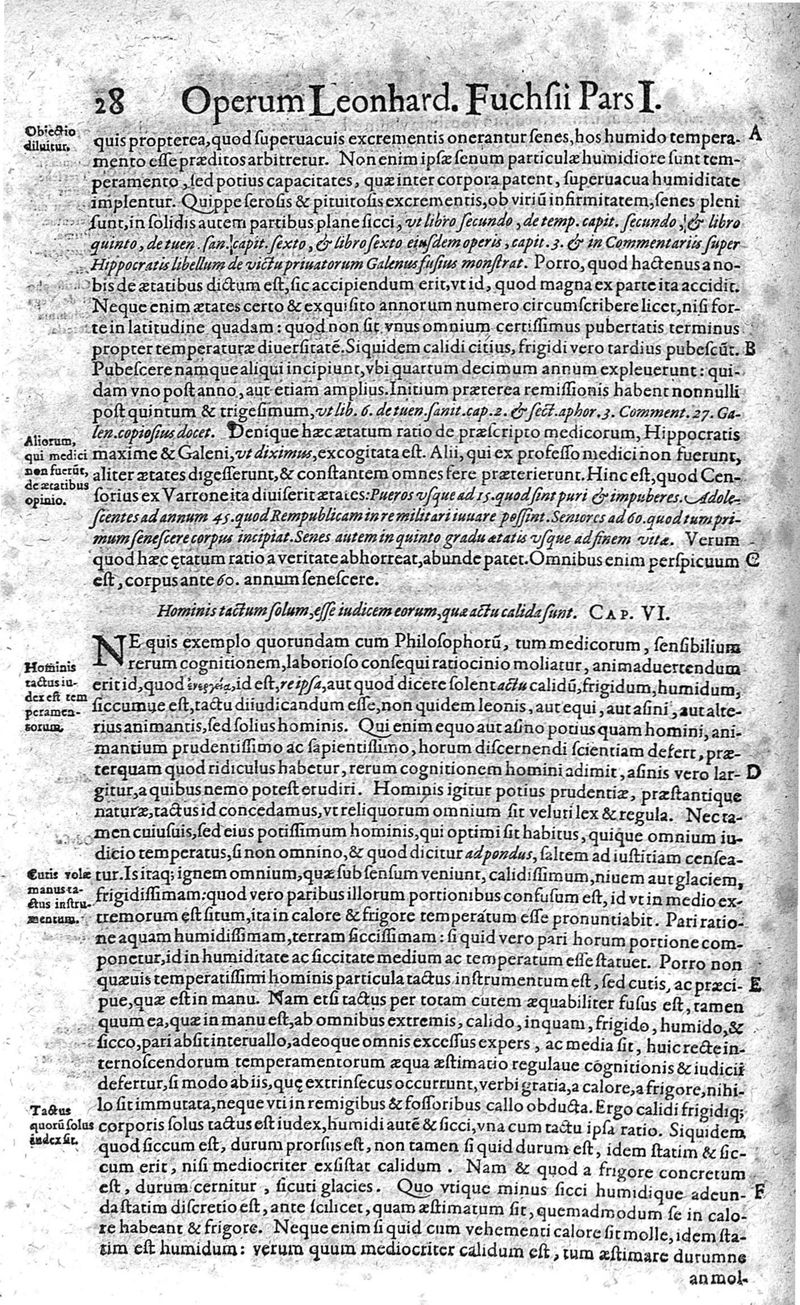 28 Operum Leonhard. Fuchsii Pars I.
Obiectio
diluitur.
quis propterea, quod superuacuis excrementis onerantur senes, hos humido tempera- A
mento esse præditos arbitretur. Non enim ipsæ senum particulæ humidiore sunt tem-
peramento, sed potius capacitates, quæ inter corpora patent, superuacua humiditate
implentur. Quippe serosis & pituitosis excrementis, ob viriū infirmitatem, senes pleni
sunt, in solidis autem partibus plane sicci, vt libro secundo, de temp. capit. secundo, & libro
quinto, de tuen. san. capit. sexto, & libro sexto eiusdem operis, capit. 3. & in Commentariis super
Hippocratis libellum de victu priuatorum Galenus fusius monstrat. Porro, quod hactenus a no-
bis de ætatibus dictum est, sic accipiendum erit, vt id, quod magna ex parte ita accidit.
Neque enim ætates certo & exquisito annorum numero circumscribere licet, nisi for-
te in latitudine quadam: quod non sit vnus omnium certissimus pubertatis terminus
propter temperaturæ diuersitatē. Siquidem calidi citius, frigidi vero tardius pubescūt. B
Pubescere namque aliqui incipiunt, vbi quartum decimum annum expleuerunt: qui-
dam vno post anno, aut etiam amplius. Initium præterea remissionis habent nonnulli
post quintum & trigesimum, vt lib. 6. de tuen. sanit. cap. 2. & sect. aphor. 3. Comment. 27. Ga-
len. copiosius docet. Denique hæc ætatum ratio de præscripto medicorum, Hippocratis
Aliorum,
qui medici
non fuerūt,
de ætatibus
opinio.
maxime & Galeni, vt diximus, excogitata est. Alii, qui ex professo medici non fuerunt,
aliter ætates digesserunt, & constantem omnes fere præterierunt. Hinc est, quod Cen-
sorius ex Varrone ita diuiserit ætates: Pueros vsque ad 15. quod sint puri & impuberes. Adole-
scentes ad annum 45. quod Rempublicam in re militari iuuare possint. Seniores ad 60. quod tum pri-
mum senescere corpus incipiat. Senes autem in quinto gradu ætatis vsque ad finem vitæ. Verum
quod hæc ętatum ratio a veritate abhorreat, abunde patet. Omnibus enim perspicuum C
est, corpus ante 60. annum senescere.
Hominis tactum solum, esse iudicem eorum, quæ actu calida sunt. CAP. VI.
NE quis exemplo quorundam cum Philosophorū, tum medicorum, sensibilium
Hominis
tactus iu-
dex est tem
peramen-
torum.
rerum cognitionem, laborioso consequi ratiocinio moliatur, animaduertendum
erit id, quod ἐνεργείᾳ, id est, re ipsa, aut quod dicere solent actu calidū, frigidum, humidum,
siccumue est, tactu diiudicandum esse, non quidem leonis, aut equi, aut asini, aut alte-
rius animantis, sed solius hominis. Qui enim equo aut asino potius quam homini, ani-
mantium prudentissimo ac sapientissimo, horum discernendi scientiam defert, præ-
terquam quod ridiculus habetur, rerum cognitionem homini adimit, asinis vero lar- D
gitur, a quibus nemo potest erudiri. Hominis igitur potius prudentiæ, præstantique
naturæ, tactus id concedamus, vt reliquorum omnium sit veluti lex & regula. Nec ta-
men cuiusuis, sed eius potissimum hominis, qui optimi sit habitus, quique omnium iu-
dicio temperatus, si non omnino, & quod dicitur ad pondus, saltem ad iustitiam censea-
Cutis volæ
manus ta-
ctus instru-
mentum.
tur. Is itaq; ignem omnium, quæ sub sensum veniunt, calidissimum, niuem aut glaciem,
frigidissimam: quod vero paribus illorum portionibus confusum est, id vt in medio ex-
tremorum ęst situm, ita in calore & frigore temperatum esse pronuntiabit. Pari ratio-
ne aquam humidissimam, terram siccissimam: si quid vero pari horum portione com-
ponetur, id in humiditate ac siccitate medium ac temperatum esse statuet. Porro non
quæuis temperatissimi hominis particula tactus instrumentum est, sed cutis, ac præci- E
pue, quæ est in manu. Nam etsi tactus per totam cutem æquabiliter fusus est, tamen
quum ea, quæ in manu est, ab omnibus extremis, calido, inquam, frigido, humido, &
sicco, pari absit interuallo, adeoque omnis excessus expers, ac media sit, huic recte in-
ternoscendorum temperamentorum æqua æstimatio regulaue cognitionis & iudicii
defertur, si modo ab iis, quę extrinsecus occurrunt, verbi gratia, a calore, a frigore, nihi-
Tactus
quorū solus
index sit.
lo sit immutata, neque vti in remigibus & fossoribus callo obducta. Ergo calidi frigidiq;
corporis solus tactus est iudex, humidi autē & sicci, vna cum tactu ipsa ratio. Siquidem
quod siccum est, durum prorsus est, non tamen si quid durum est, idem statim & sic-
cum erit, nisi mediocriter exsistat calidum. Nam & quod a frigore concretum
est, durum cernitur, sicuti glacies. Quo vtique minus sicci humidique adeun- F
da statim discretio est, ante scilicet, quam æstimatum sit, quemadmodum se in calo-
re habeant & frigore. Neque enim si quid cum vehementi calore sit molle, idem sta-
tim est humidum: verum quum mediocriter calidum est, tum æstimare durumne
an mol-